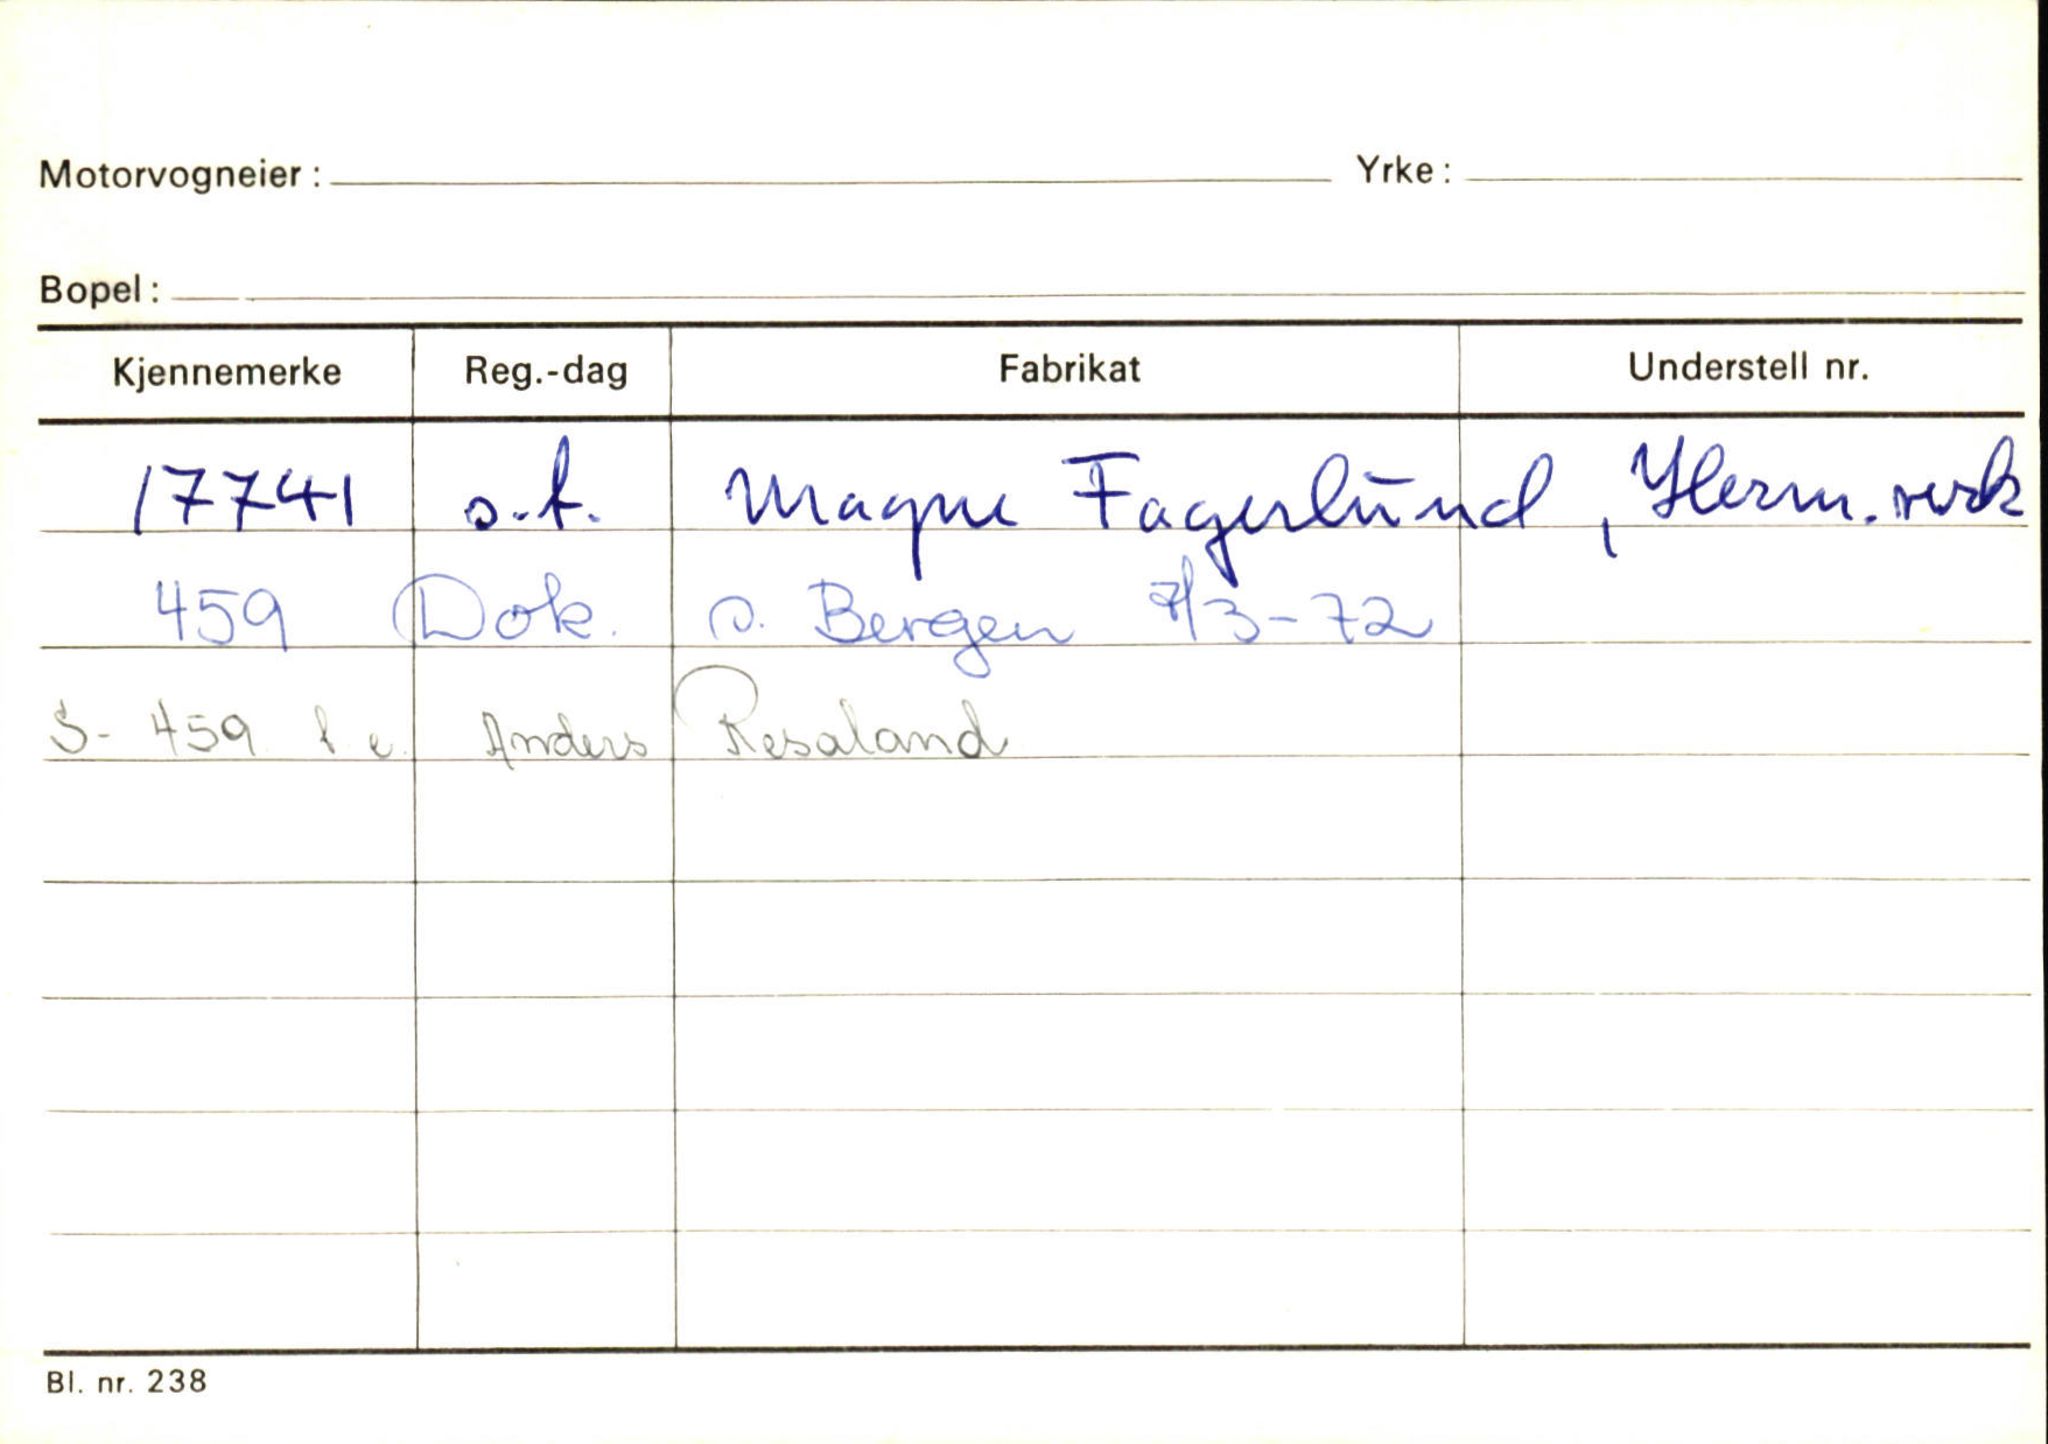 Motorvogneier: Yrke:
Bopel:
Kjennemerke Reg.-dag Fabrikat Understell nr.
17741 s.t. Magne Fagerlund, Herm.verk
459 Dok. s. Bergen 7/3-72
S- 459 t.e. Anders Resaland
Bl. nr. 238